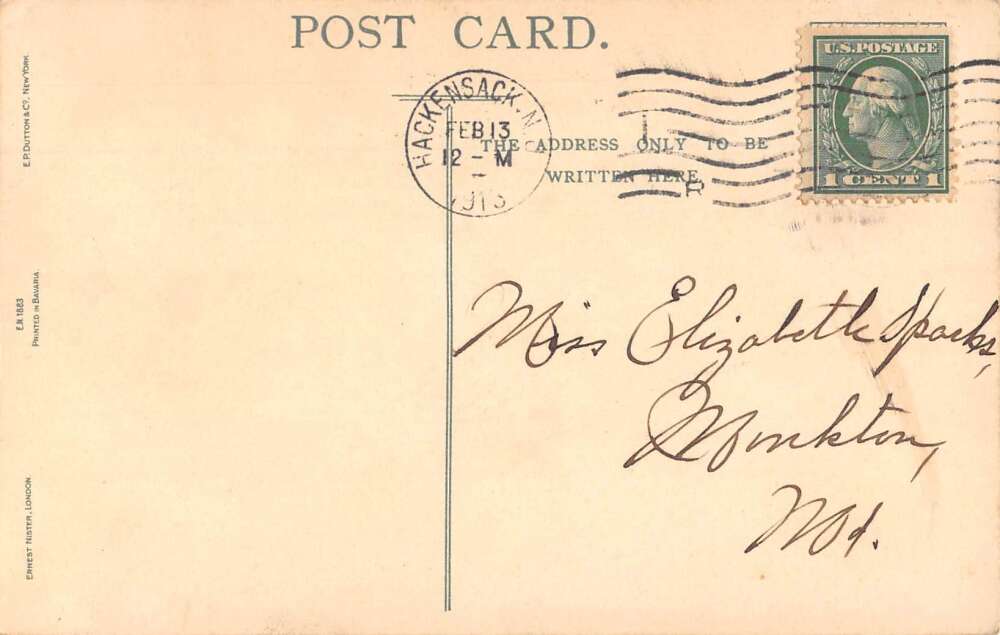 POST CARD.
U.S. POSTAGE
1 CENT 1
HACKENSACK, N.J.
FEB 13
12 - M
1913
THE ADDRESS ONLY TO BE
WRITTEN HERE
R
Miss Elizabeth Sparks,
Monkton,
Md.
E.P. DUTTON & CO. NEW YORK.
E.N. 1883
PRINTED IN BAVARIA.
ERNEST NISTER, LONDON.